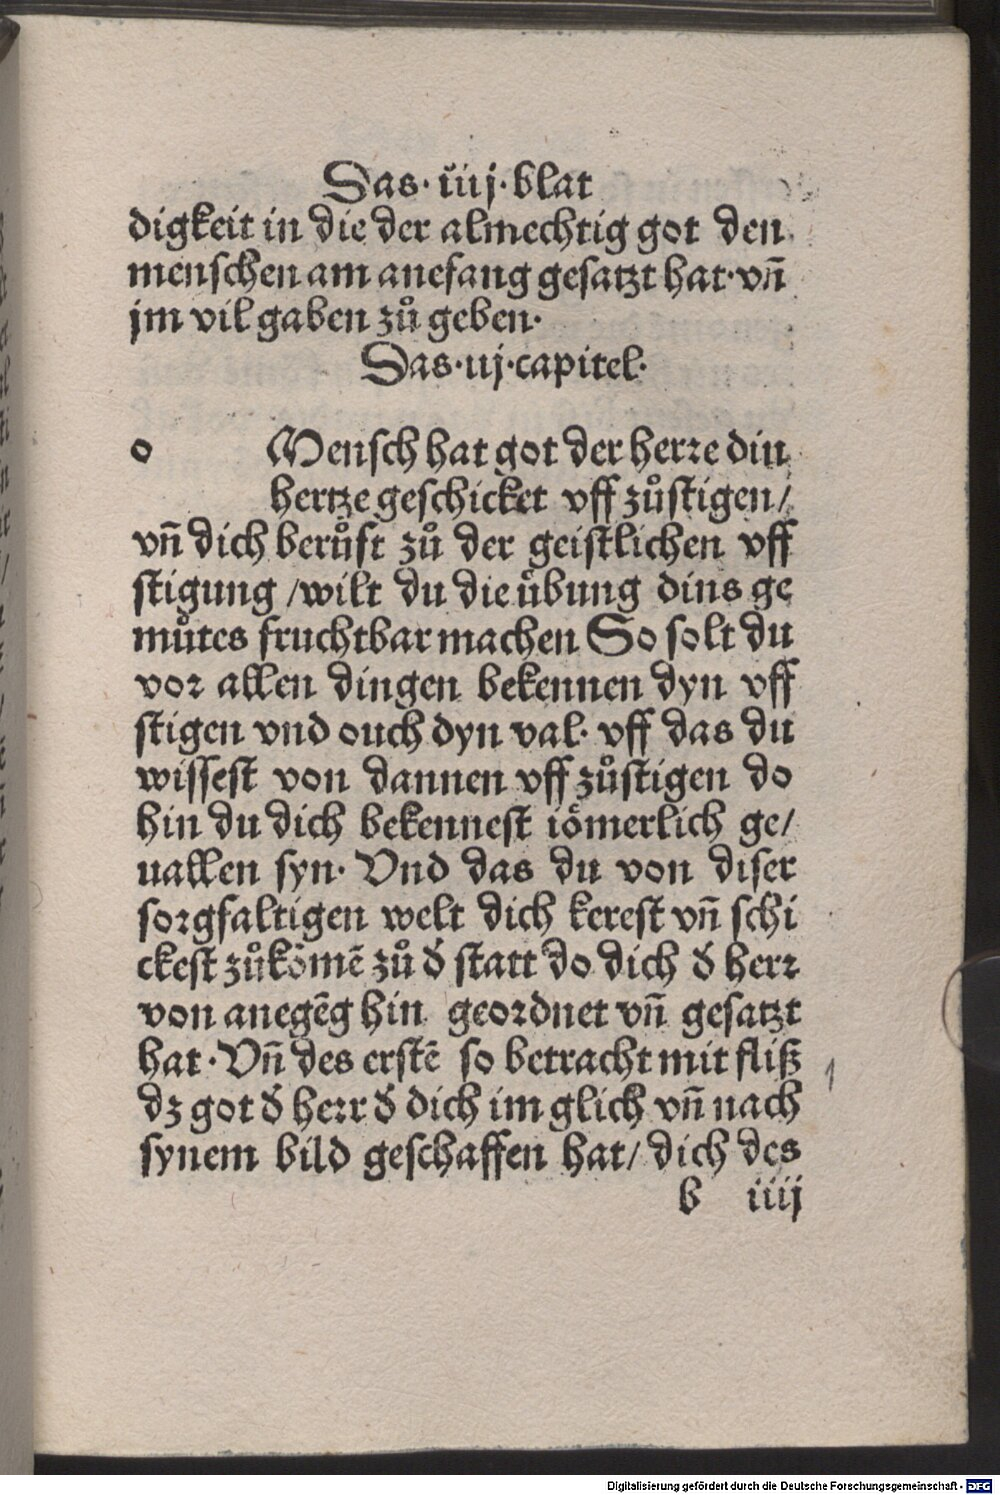 Das· iiij· blat
digkeit in die der almechtig got den
menschen am anefang gesatzt hat· vn̄
jm vil gaben zů geben·
Das· vj· capitel·
o Mensch hat got der herꝛe din
hertze geschicket vff zůstigen/
vn̄ dich berůft zů der geistlichen vff
stigung /wilt du die ůbung dins ge
můtes fruchtbar machen So solt du
voꝛ allen dingen bekennen dyn vff
stigen vnd ouch dyn val· vff das du
wissest von dannen vff zůstigen do
hin du dich bekennest iömerlich ge/
uallen syn· Vnd das du von diser
soꝛgfaltigen welt dich kerest vn̄ schi
ckest zůkömē zů d̓ statt do dich d̓ herꝛ
von anegēg hin geoꝛdnet vn̄ gesatzt
hat· Vn̄ des erstē so betracht mit fliß
dz got d̓ herꝛ d̓ dich im glich vn̄ nach
synem bild geschaffen hat/ dich des
b iiij
Digitalisierung gefördert durch die Deutsche Forschungsgemeinschaft - DFG